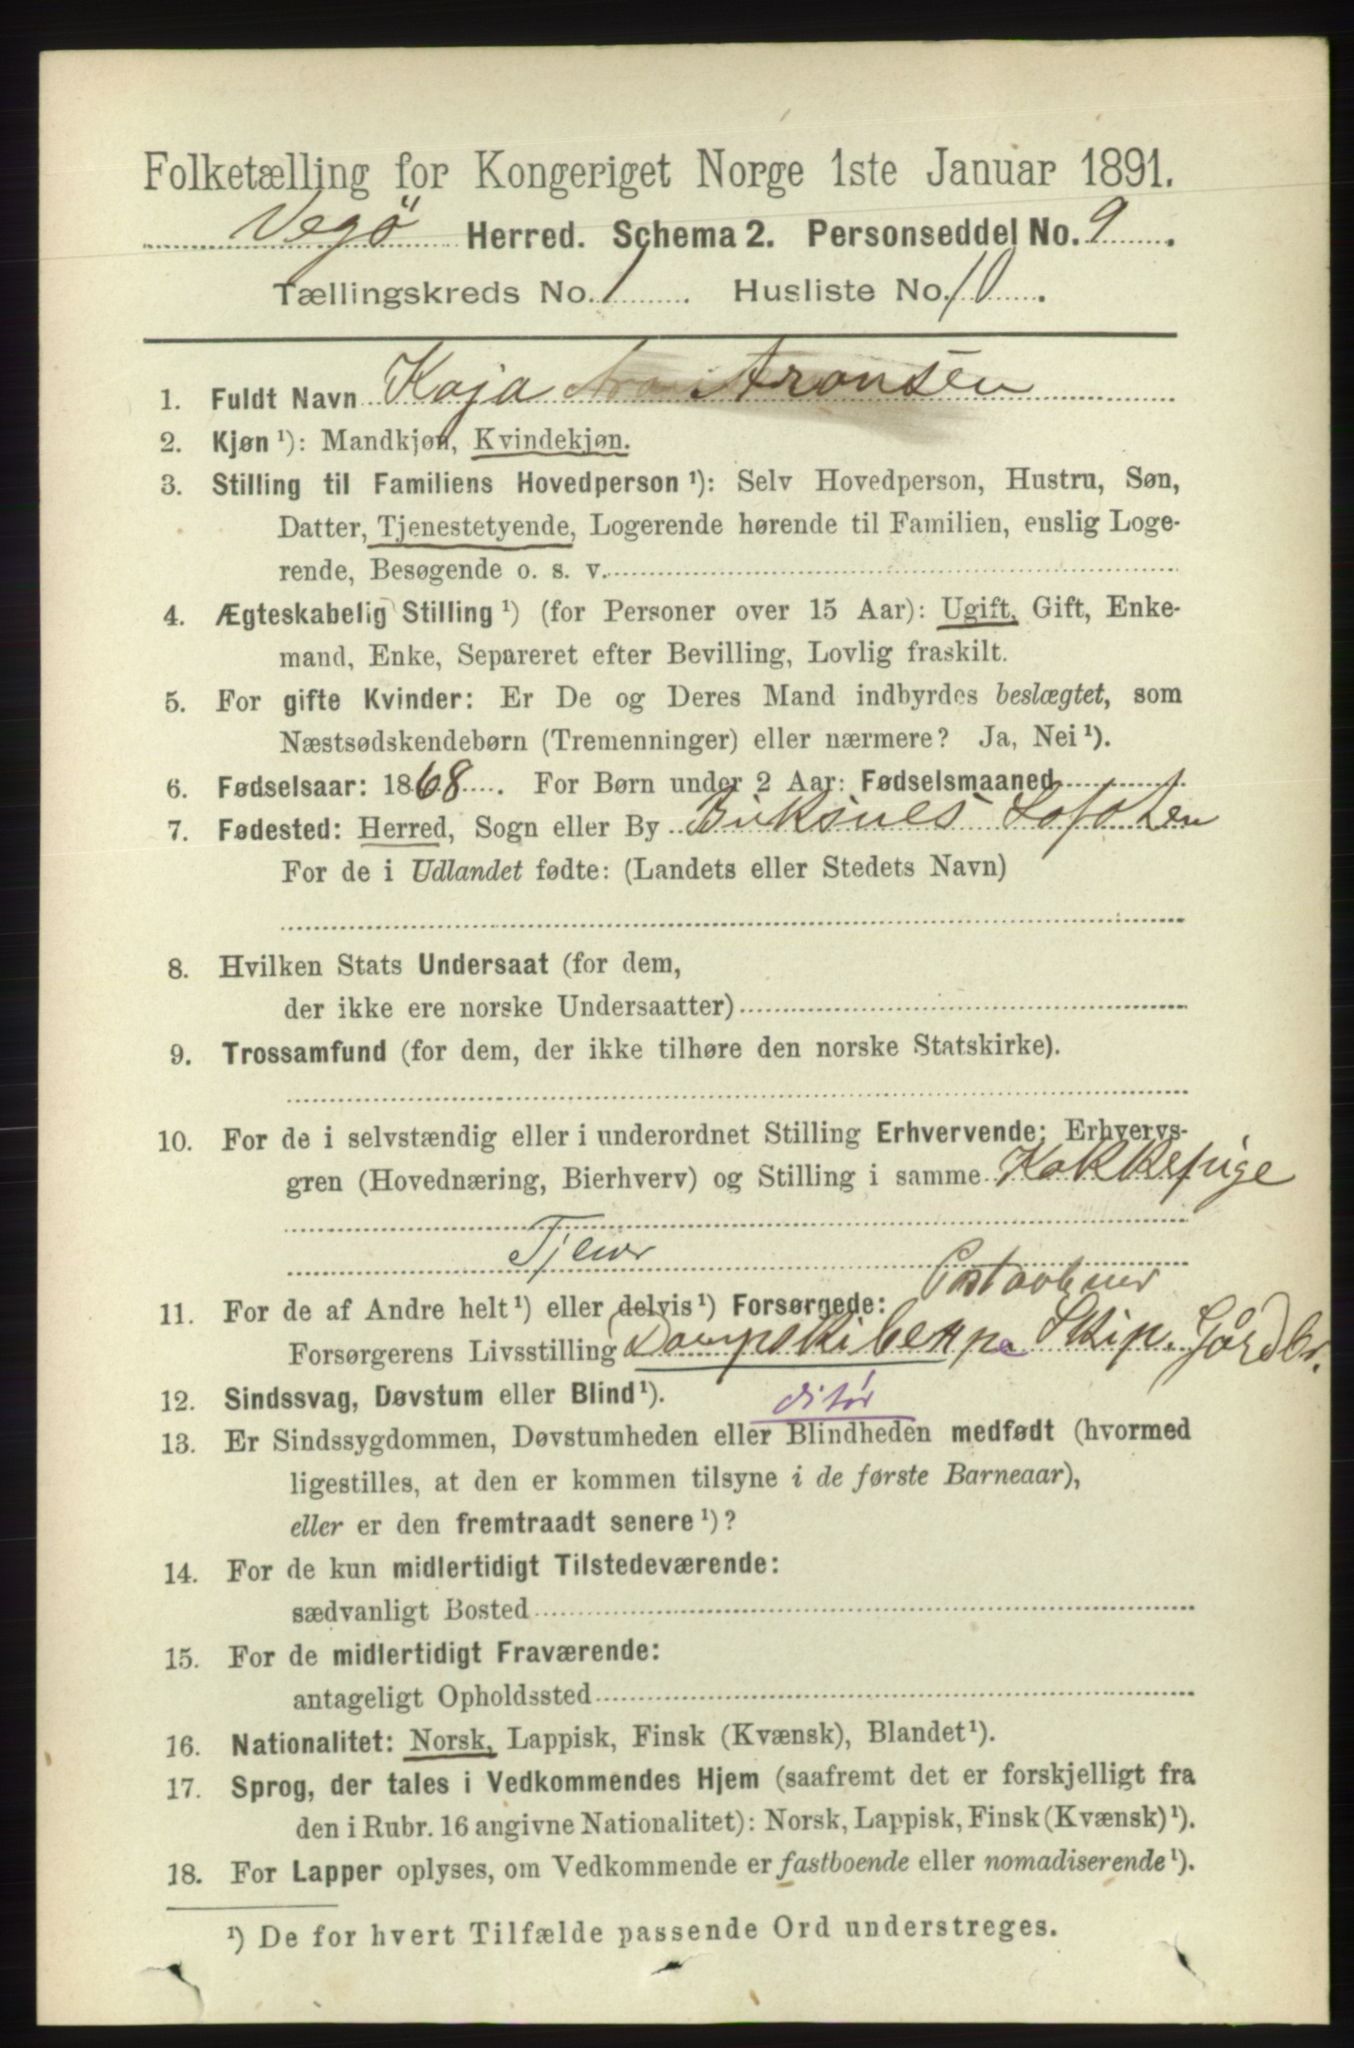 Folketælling for Kongeriget Norge 1ste Januar 1891.
Vegö Herred. Schema 2. Personseddel No. 9.
Tællingskreds No. 1. Husliste No. 10.
1. Fuldt Navn Kaja Aronsen
2. Kjøn ¹): Mandkjøn, Kvindekjøn.
3. Stilling til Familiens Hovedperson ¹): Selv Hovedperson, Hustru, Søn,
Datter, Tjenestetyende, Logerende hørende til Familien, enslig Loge-
rende, Besøgende o. s. v.
4. Ægteskabelig Stilling ¹) (for Personer over 15 Aar): Ugift, Gift, Enke-
mand, Enke, Separeret efter Bevilling, Lovlig fraskilt.
5. For gifte Kvinder: Er De og Deres Mand indbyrdes beslægtet, som
Næstsødskendebørn (Tremenninger) eller nærmere? Ja, Nei ¹).
6. Fødselsaar: 1868. For Børn under 2 Aar: Fødselsmaaned
7. Fødested: Herred, Sogn eller By Buksnes Lofoten
For de i Udlandet fødte: (Landets eller Stedets Navn)
8. Hvilken Stats Undersaat (for dem,
der ikke ere norske Undersaatter)
9. Trossamfund (for dem, der ikke tilhøre den norske Statskirke).
10. For de i selvstændig eller i underordnet Stilling Erhvervende: Erhvervs-
gren (Hovednæring, Bierhverv) og Stilling i samme Kokkepige
Postaabner
11. For de af Andre helt ¹) eller delvis ¹) Forsørgede:
Forsørgerens Livsstilling Skip. Gårdbr.
12. Sindssvag, Døvstum eller Blind ¹).
13. Er Sindssygdommen, Døvstumheden eller Blindheden medfødt (hvormed
ligestilles, at den er kommen tilsyne i de første Barneaar),
eller er den fremtraadt senere ¹)?
14. For de kun midlertidigt Tilstedeværende:
sædvanligt Bosted
15. For de midlertidigt Fraværende:
antageligt Opholdssted
16. Nationalitet: Norsk, Lappisk, Finsk (Kvænsk), Blandet ¹).
17. Sprog, der tales i Vedkommendes Hjem (saafremt det er forskjelligt fra
den i Rubr. 16 angivne Nationalitet): Norsk, Lappisk, Finsk (Kvænsk) ¹).
18. For Lapper oplyses, om Vedkommende er fastboende eller nomadiserende ¹).
¹) De for hvert Tilfælde passende Ord understreges.